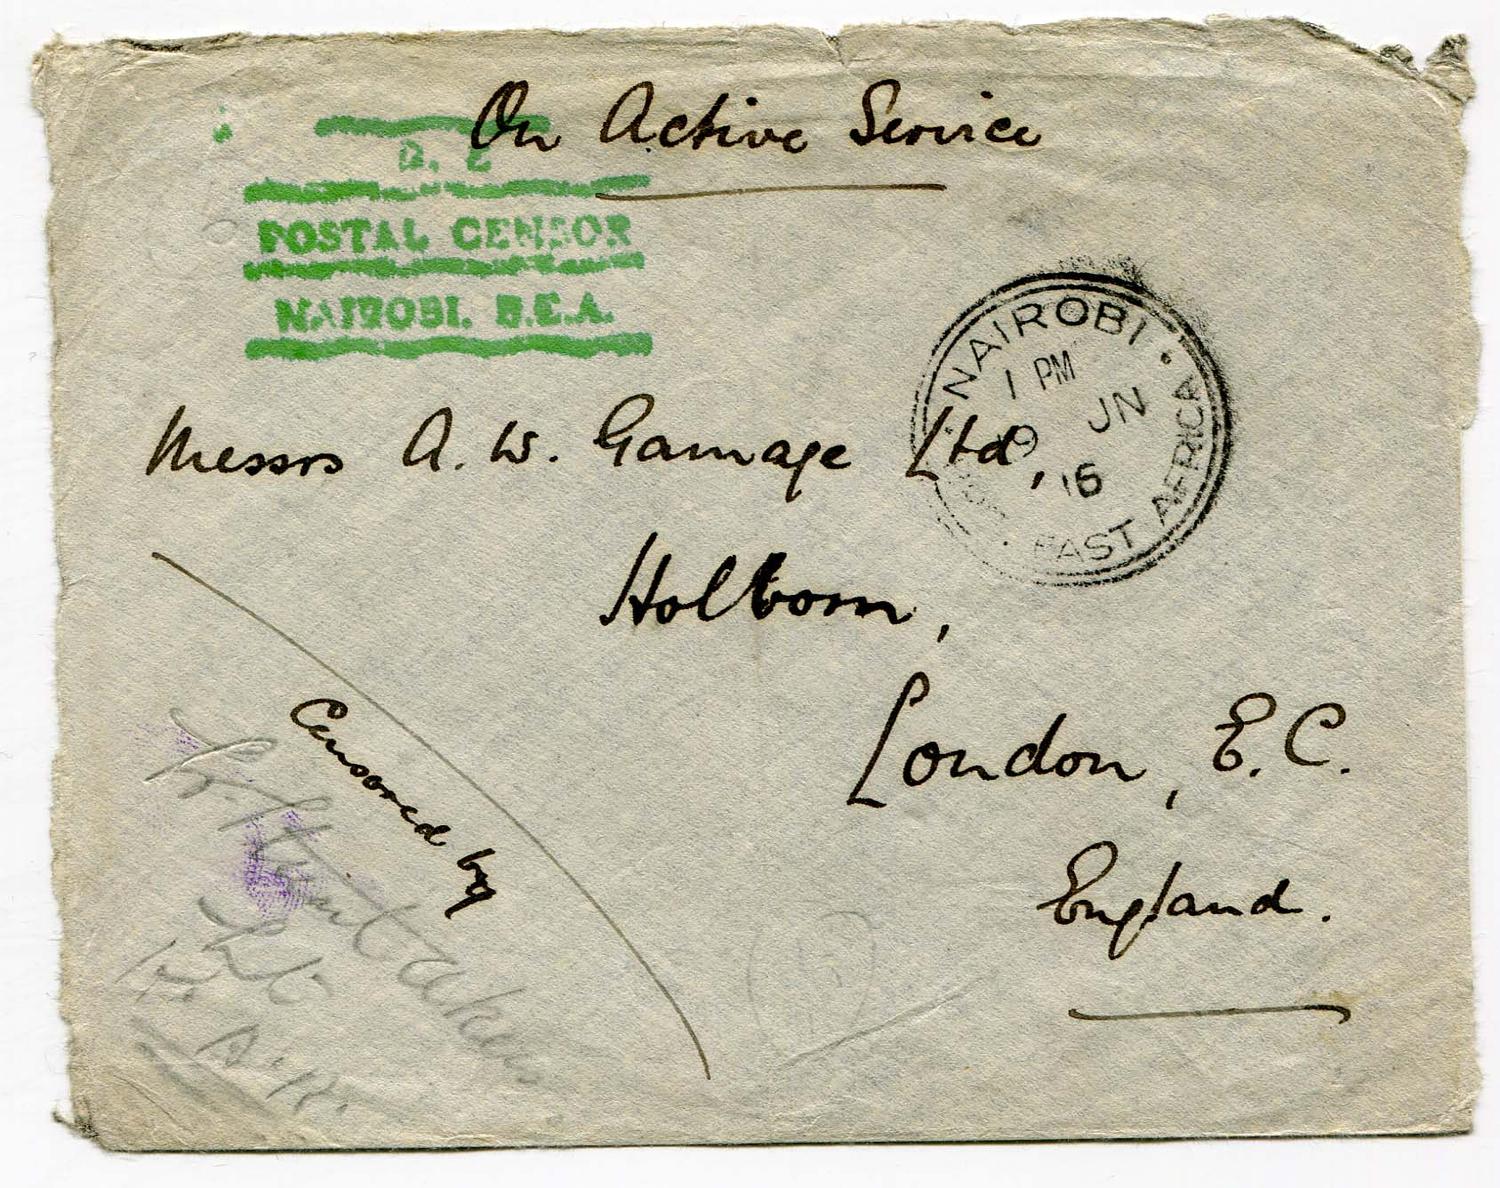 On Active Service
POSTAL CENSOR
NAIROBI. B.E.A.
NAIROBI · EAST AFRICA
1 PM
JN
16
Messrs A. W. Gamage Ltd,
Holborn,
London, E.C.
England.
Censored by
K. A. R.